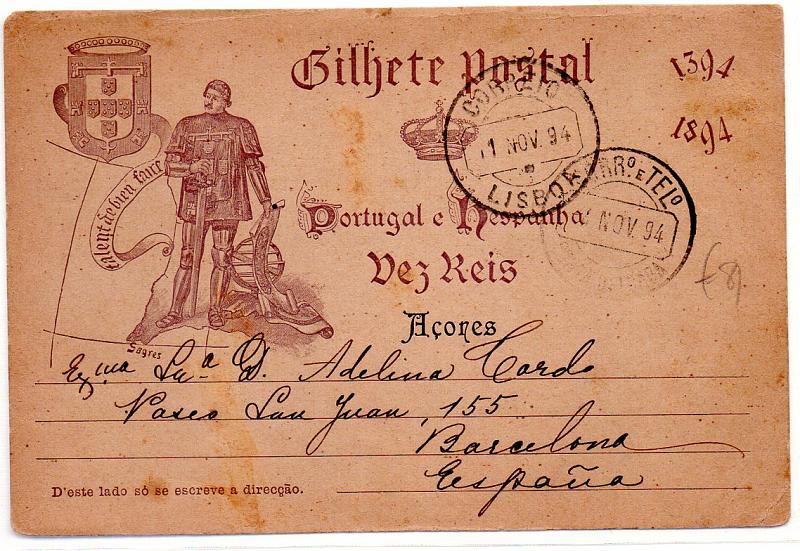 Bilhete Postal
1394
1894
talent de bien faire
CORREIO
11 NOV. 94
LISBOA
RRº E TELº
NOV. 94
Portugal e Hespanha
Dez Reis
Açores
Sagres
Exma Snra D. Adelina Cordo
Paseo San Juan, 155
Barcelona
España
D'este lado só se escreve a direcção.